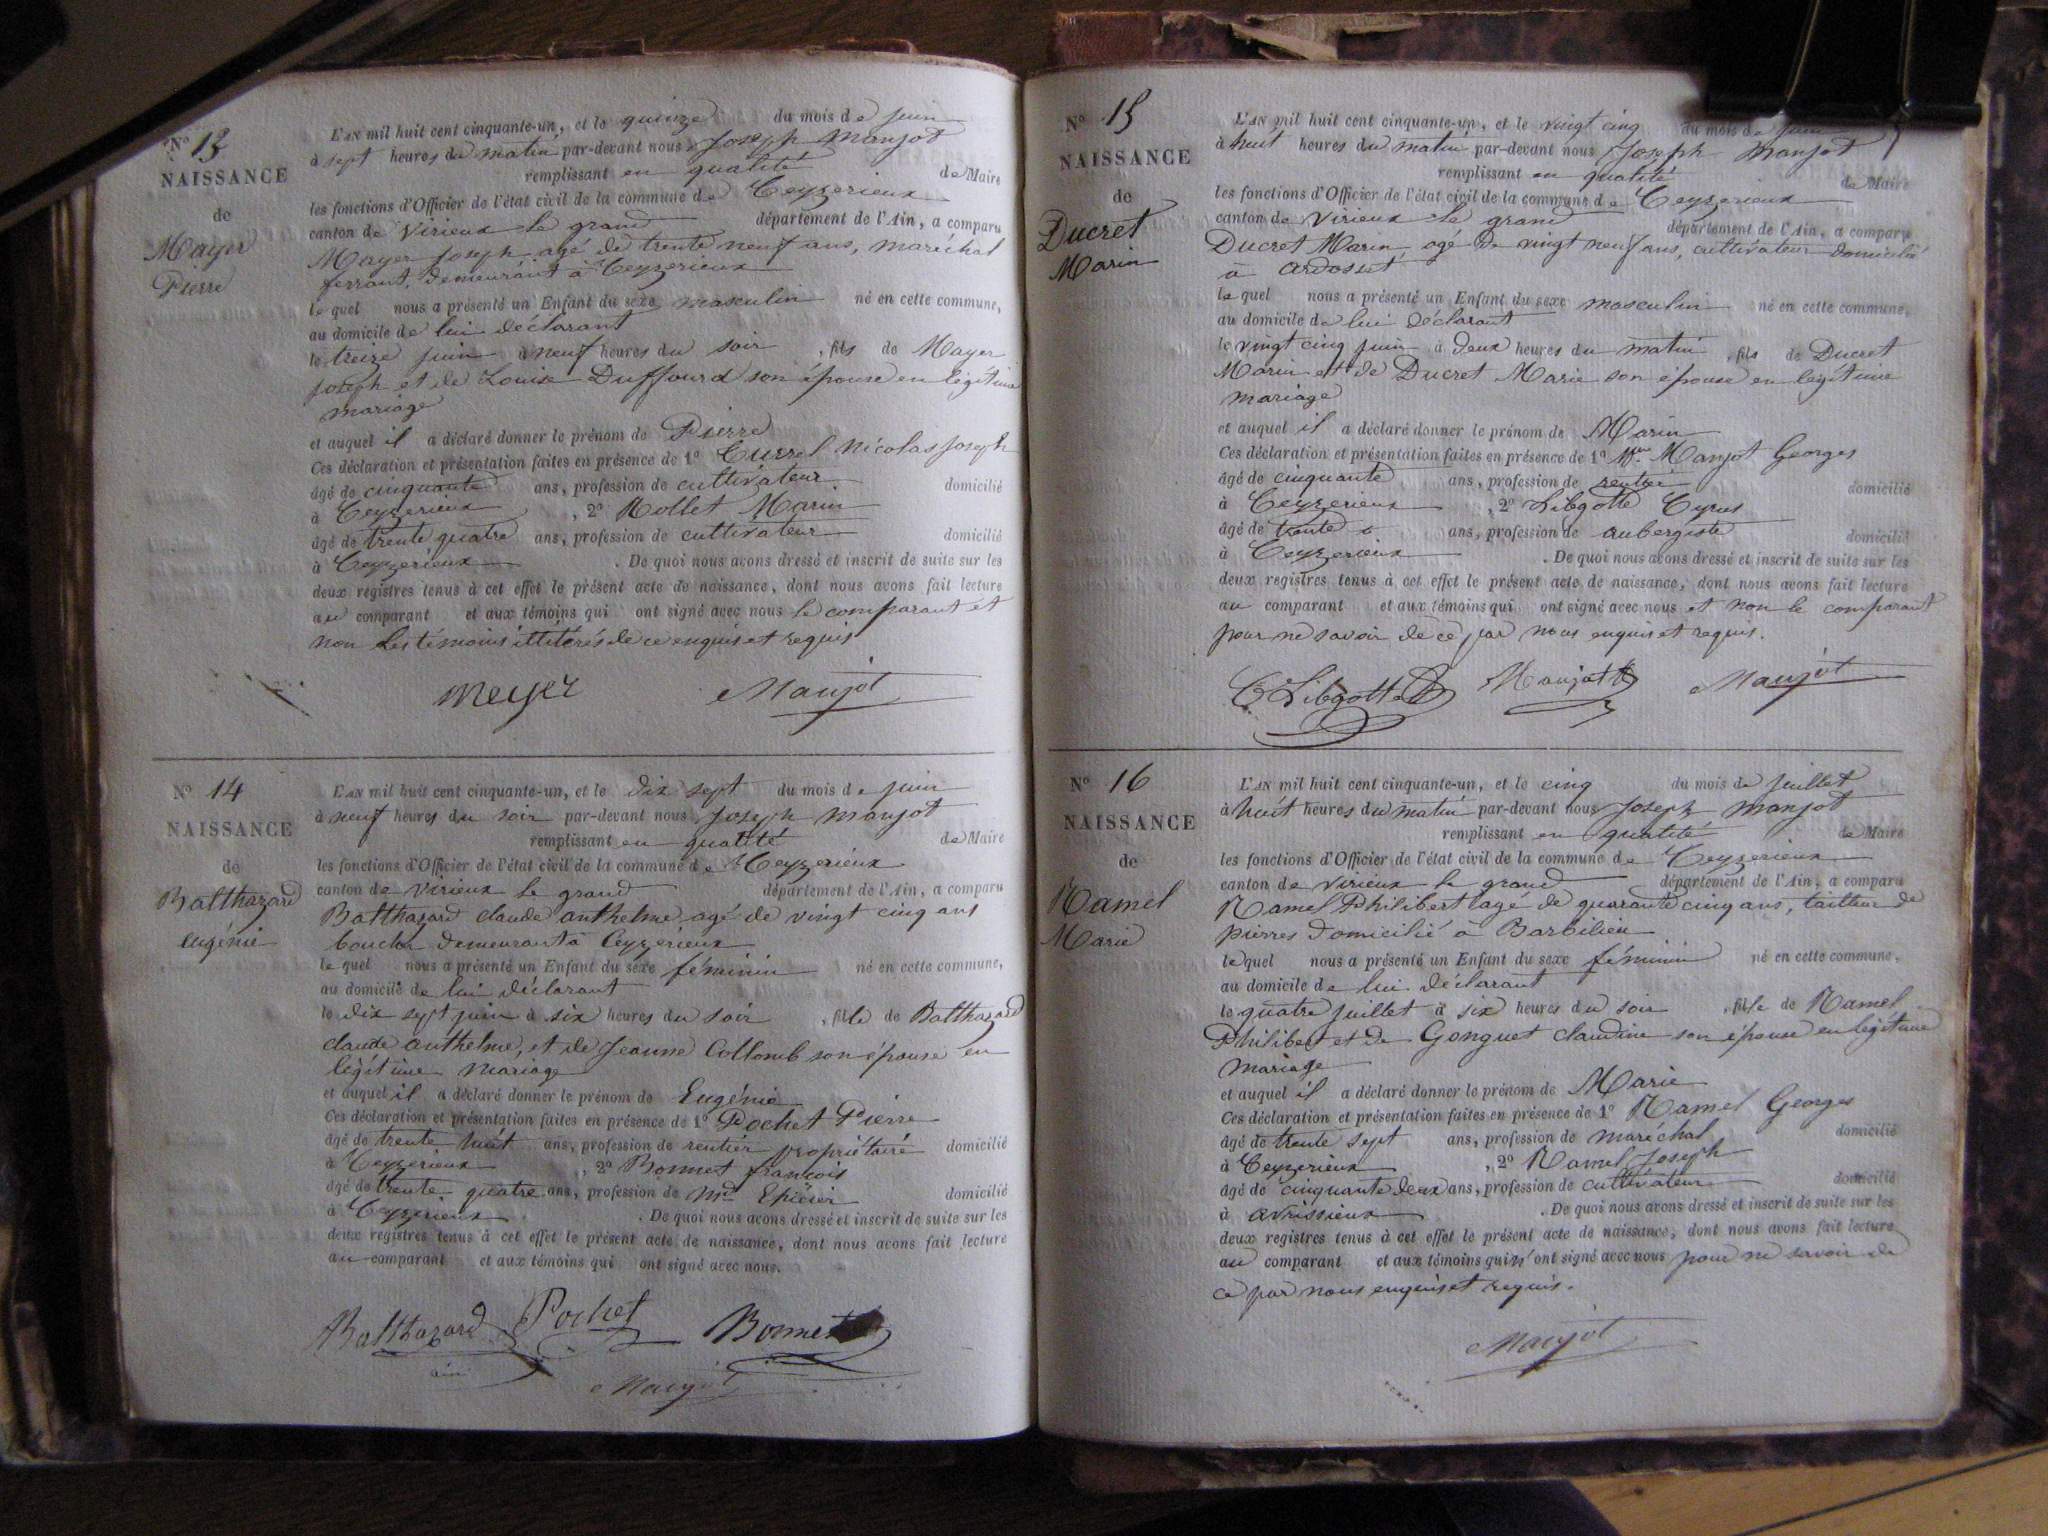 N° 13
NAISSANCE
de
Mayer
Pierre
L'AN mil huit cent cinquante-un, et le quinze du mois de juin
à sept heures du matin par-devant nous Joseph Manjot
remplissant en qualité de Maire
les fonctions d'Officier de l'état civil de la commune de Ceyzerieux
canton de Virieux le grand département de l'Ain, a comparu
Mayer Joseph agé de trente neuf ans, maréchal
ferrant, demeurant à Ceyzerieux
le quel nous a présenté un Enfant du sexe masculin né en cette commune,
au domicile de lui déclarant
le treize juin à neuf heures du soir , fils de Mayer
Joseph et de Louise Duffourd son épouse en légitime
mariage
et auquel il a déclaré donner le prénom de Pierre
Ces déclaration et présentation faites en présence de 1° Currel Nicolas Joseph
âgé de cinquante ans, profession de cultivateur domicilié
à Ceyzerieux , 2° Rollet Marin
âgé de trente quatre ans, profession de cultivateur domicilié
à Ceyzerieux . De quoi nous avons dressé et inscrit de suite sur les
deux registres tenus à cet effet le présent acte de naissance, dont nous avons fait lecture
au comparant et aux témoins qui ont signé avec nous le comparant et
non les témoins illitérés de ce enquis et requis
meyer Manjot
N° 14
NAISSANCE
de
Balthazard
Eugénie
L'AN mil huit cent cinquante-un, et le dix sept du mois de juin
à neuf heures du soir par-devant nous Joseph Manjot
remplissant en qualité de Maire
les fonctions d'Officier de l'état civil de la commune de Ceyzerieux
canton de Virieux le grand département de l'Ain, a comparu
Balthazard claude anthelme agé de vingt cinq ans
boucher demeurant à Ceyzerieux
le quel nous a présenté un Enfant du sexe féminin né en cette commune,
au domicile de lui déclarant
le dix sept juin à six heures du soir , fille de Balthazard
claude anthelme, et de Jeanne Collomb son épouse en
légitime mariage
et auquel il a déclaré donner le prénom de Eugénie
Ces déclaration et présentation faites en présence de 1° Pochet Pierre
âgé de trente huit ans, profession de rentier propriétaire domicilié
à Ceyzerieux , 2° Bonnet françois
âgé de trente quatre ans, profession de md Epicier domicilié
à Ceyzerieux . De quoi nous avons dressé et inscrit de suite sur les
deux registres tenus à cet effet le présent acte de naissance, dont nous avons fait lecture
au comparant et aux témoins qui ont signé avec nous.
Balthazard Pochet Bonnet
Manjot
N° 15
NAISSANCE
de
Ducret
Marin
L'AN mil huit cent cinquante-un, et le vingt cinq du mois de juin
à huit heures du matin par-devant nous Joseph Manjot
remplissant en qualité de Maire
les fonctions d'Officier de l'état civil de la commune de Ceyzerieux
canton de Virieux le grand département de l'Ain, a comparu
Ducret Marin agé de vingt neuf ans, cultivateur domicilié
à ardosset
le quel nous a présenté un Enfant du sexe masculin né en cette commune,
au domicile de lui déclarant
le vingt cinq juin à deux heures du matin , fils de Ducret
Marin et de Ducret Marie son épouse en légitime
mariage
et auquel il a déclaré donner le prénom de Marin
Ces déclaration et présentation faites en présence de 1° Manjot Georges
âgé de cinquante ans, profession de rentier domicilié
à Ceyzerieux , 2° Libgotte Cyrus
âgé de trente ans, profession de aubergiste domicilié
à Ceyzerieux . De quoi nous avons dressé et inscrit de suite sur les
deux registres tenus à cet effet le présent acte de naissance, dont nous avons fait lecture
au comparant et aux témoins qui ont signé avec nous et non le comparant
pour ne savoir de ce par nous enquis et requis.
C Libgotte Manjot Manjot
N° 16
NAISSANCE
de
Ramel
Marie
L'AN mil huit cent cinquante-un, et le cinq du mois de juillet
à huit heures du matin par-devant nous Joseph Manjot
remplissant en qualité de Maire
les fonctions d'Officier de l'état civil de la commune de Ceyzerieux
canton de Virieux le grand département de l'Ain, a comparu
Ramel Philibert agé de quarante cinq ans, tailleur de
pierres domicilié à Barbilieu
le quel nous a présenté un Enfant du sexe féminin né en cette commune,
au domicile de lui déclarant
le quatre juillet à six heures du soir , fille de Ramel
Philibert et de Gonguet claudine son épouse en légitime
mariage
et auquel il a déclaré donner le prénom de Marie
Ces déclaration et présentation faites en présence de 1° Ramel Georges
âgé de trente sept ans, profession de maréchal domicilié
à Ceyzerieux , 2° Ramel Joseph
âgé de cinquante deux ans, profession de cultivateur domicilié
à avrissieux . De quoi nous avons dressé et inscrit de suite sur les
deux registres tenus à cet effet le présent acte de naissance, dont nous avons fait lecture
au comparant et aux témoins qui n'ont signé avec nous pour ne savoir de
ce par nous enquis et requis.
Manjot